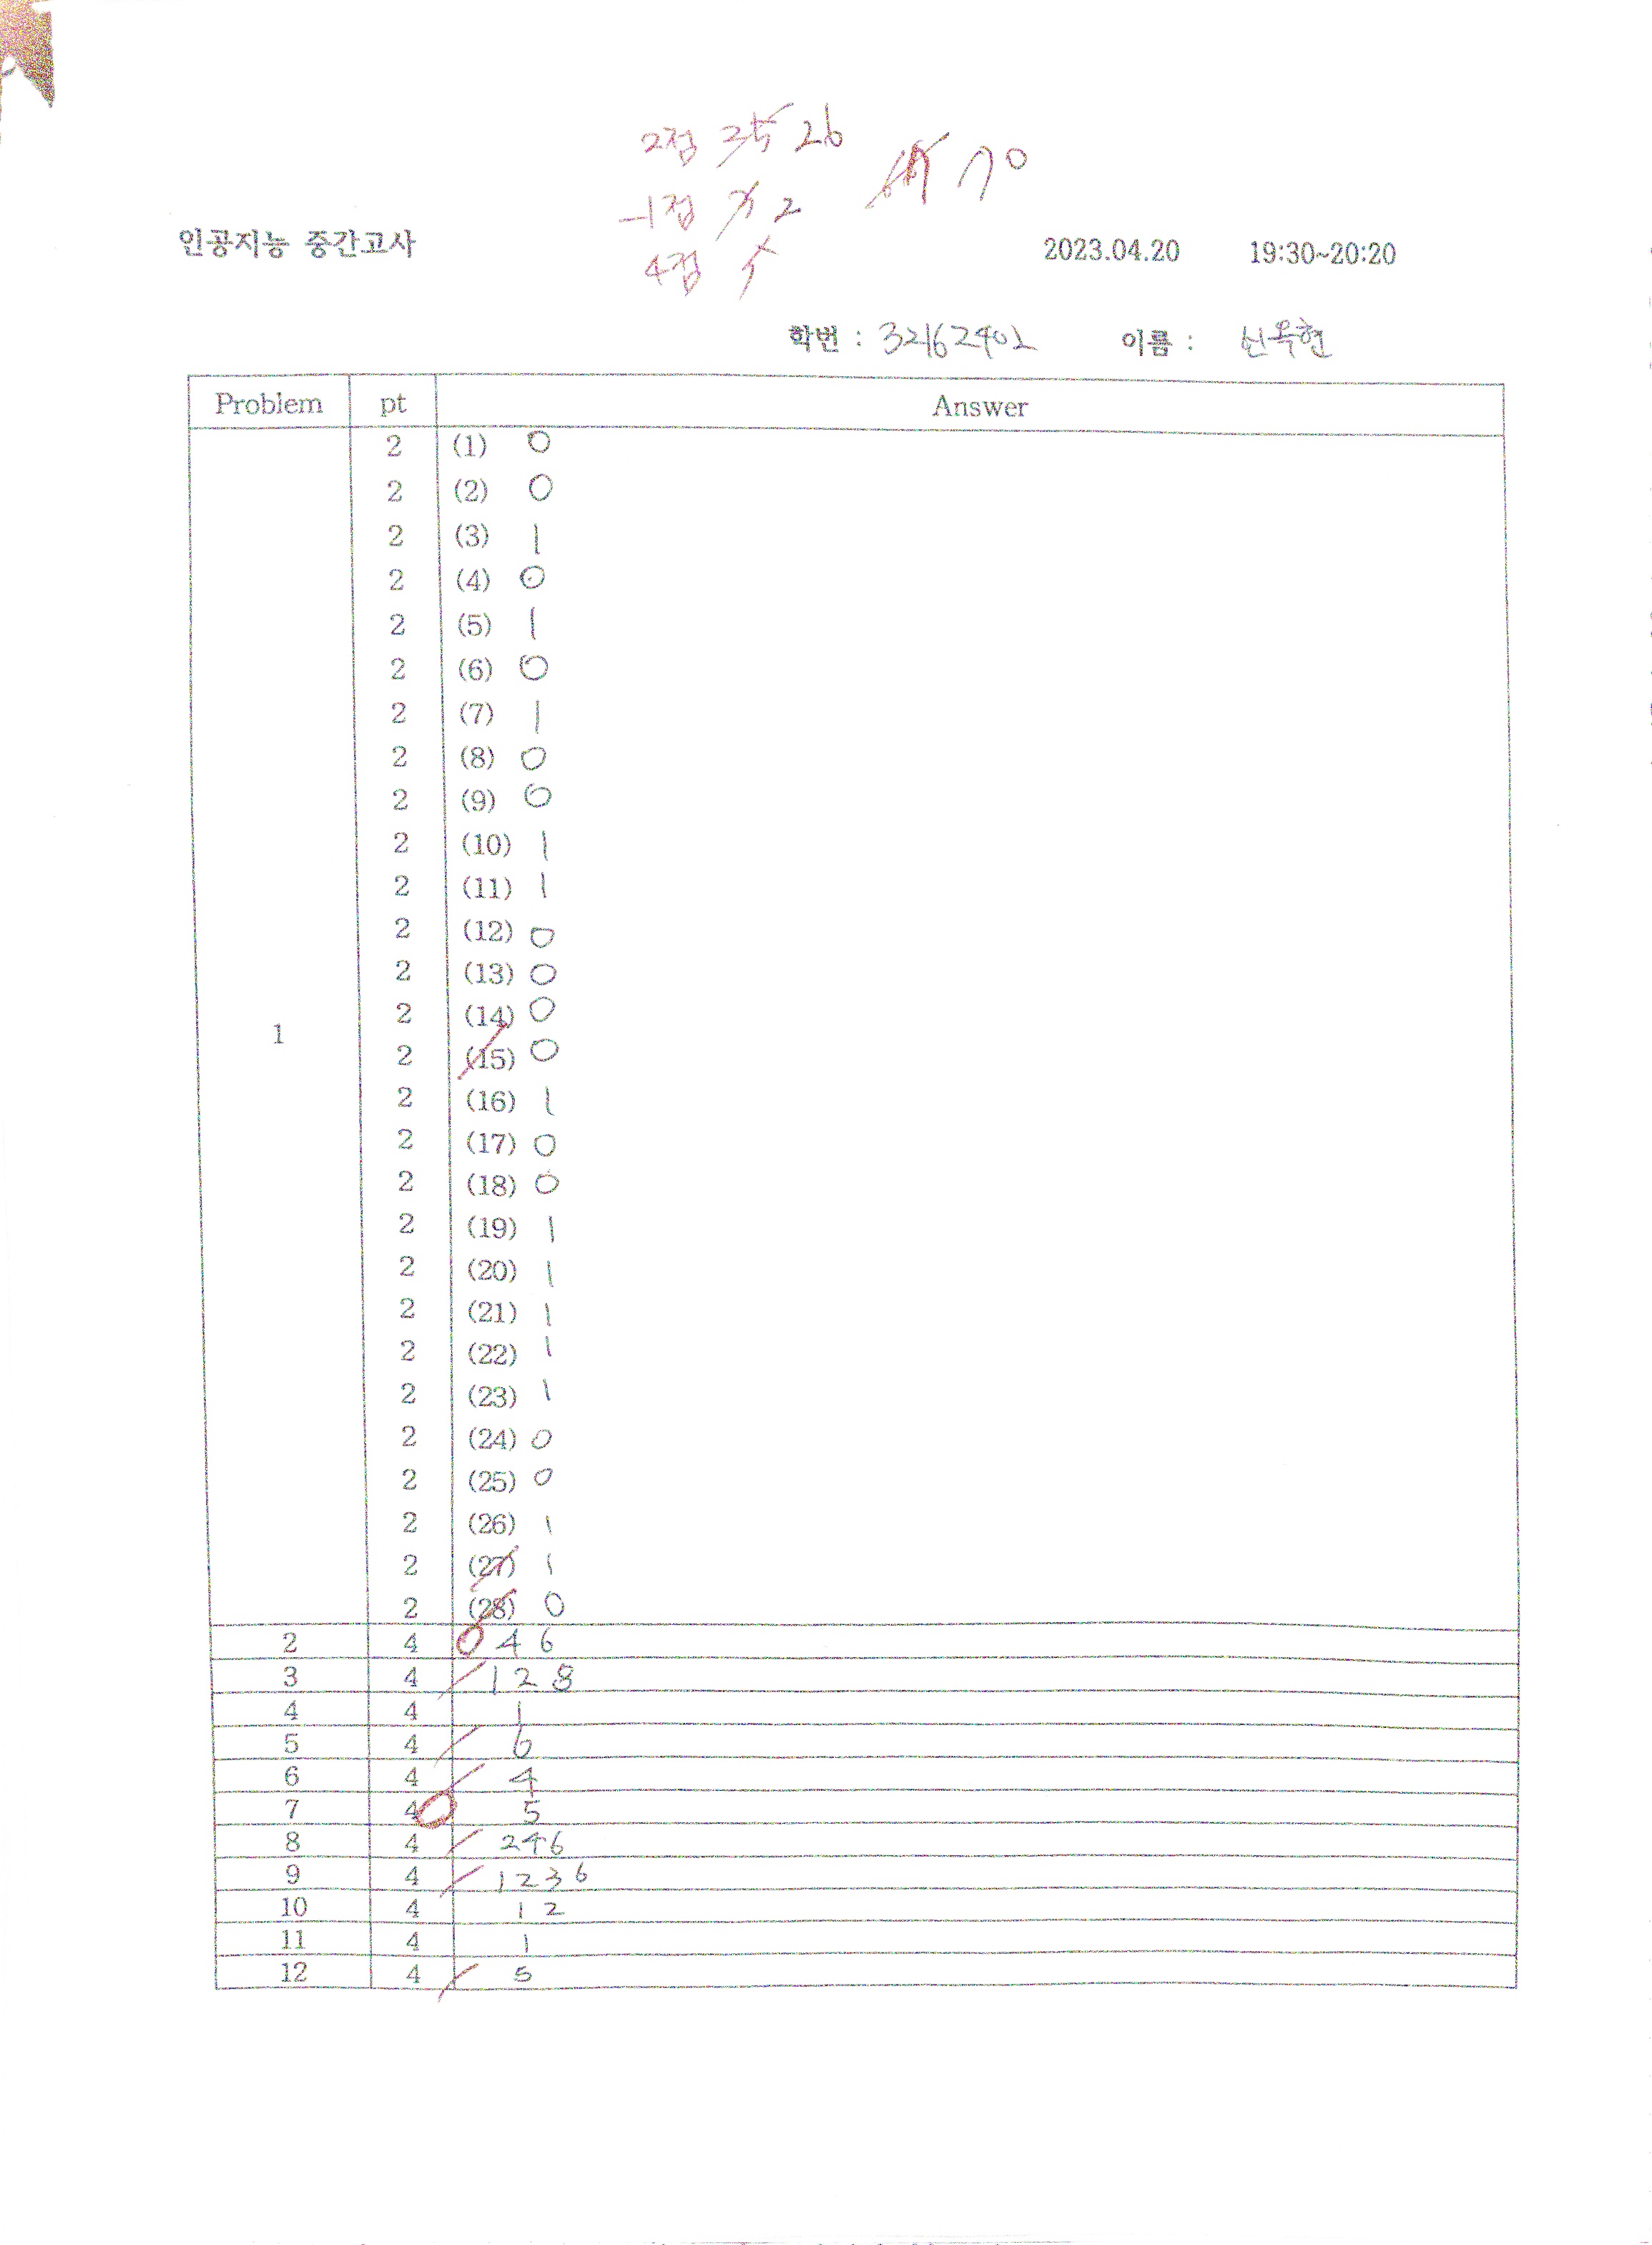 2점 25 26
70
-1점 3 2
4점 5
인공지능 중간고사 2023.04.20 19:30~20:20
학번 : 32162402 이름 : 신욱현
Problem pt Answer
2 (1) 0
2 (2) 0
2 (3) 1
2 (4) 0
2 (5) 1
2 (6) 0
2 (7) 1
2 (8) 0
2 (9) 0
2 (10) 1
2 (11) 1
2 (12) 0
2 (13) 0
2 (14) 0
1
2 (15) 0
2 (16) 1
2 (17) 0
2 (18) 0
2 (19) 1
2 (20) 1
2 (21) 1
2 (22) 1
2 (23) 1
2 (24) 0
2 (25) 0
2 (26) 1
2 (27) 1
2 (28) 0
2 4 4 6
3 4 1 2 8
4 4 1
5 4 6
6 4 4
7 4 5
8 4 2 4 6
9 4 1 2 3 6
10 4 1 2
11 4 1
12 4 5